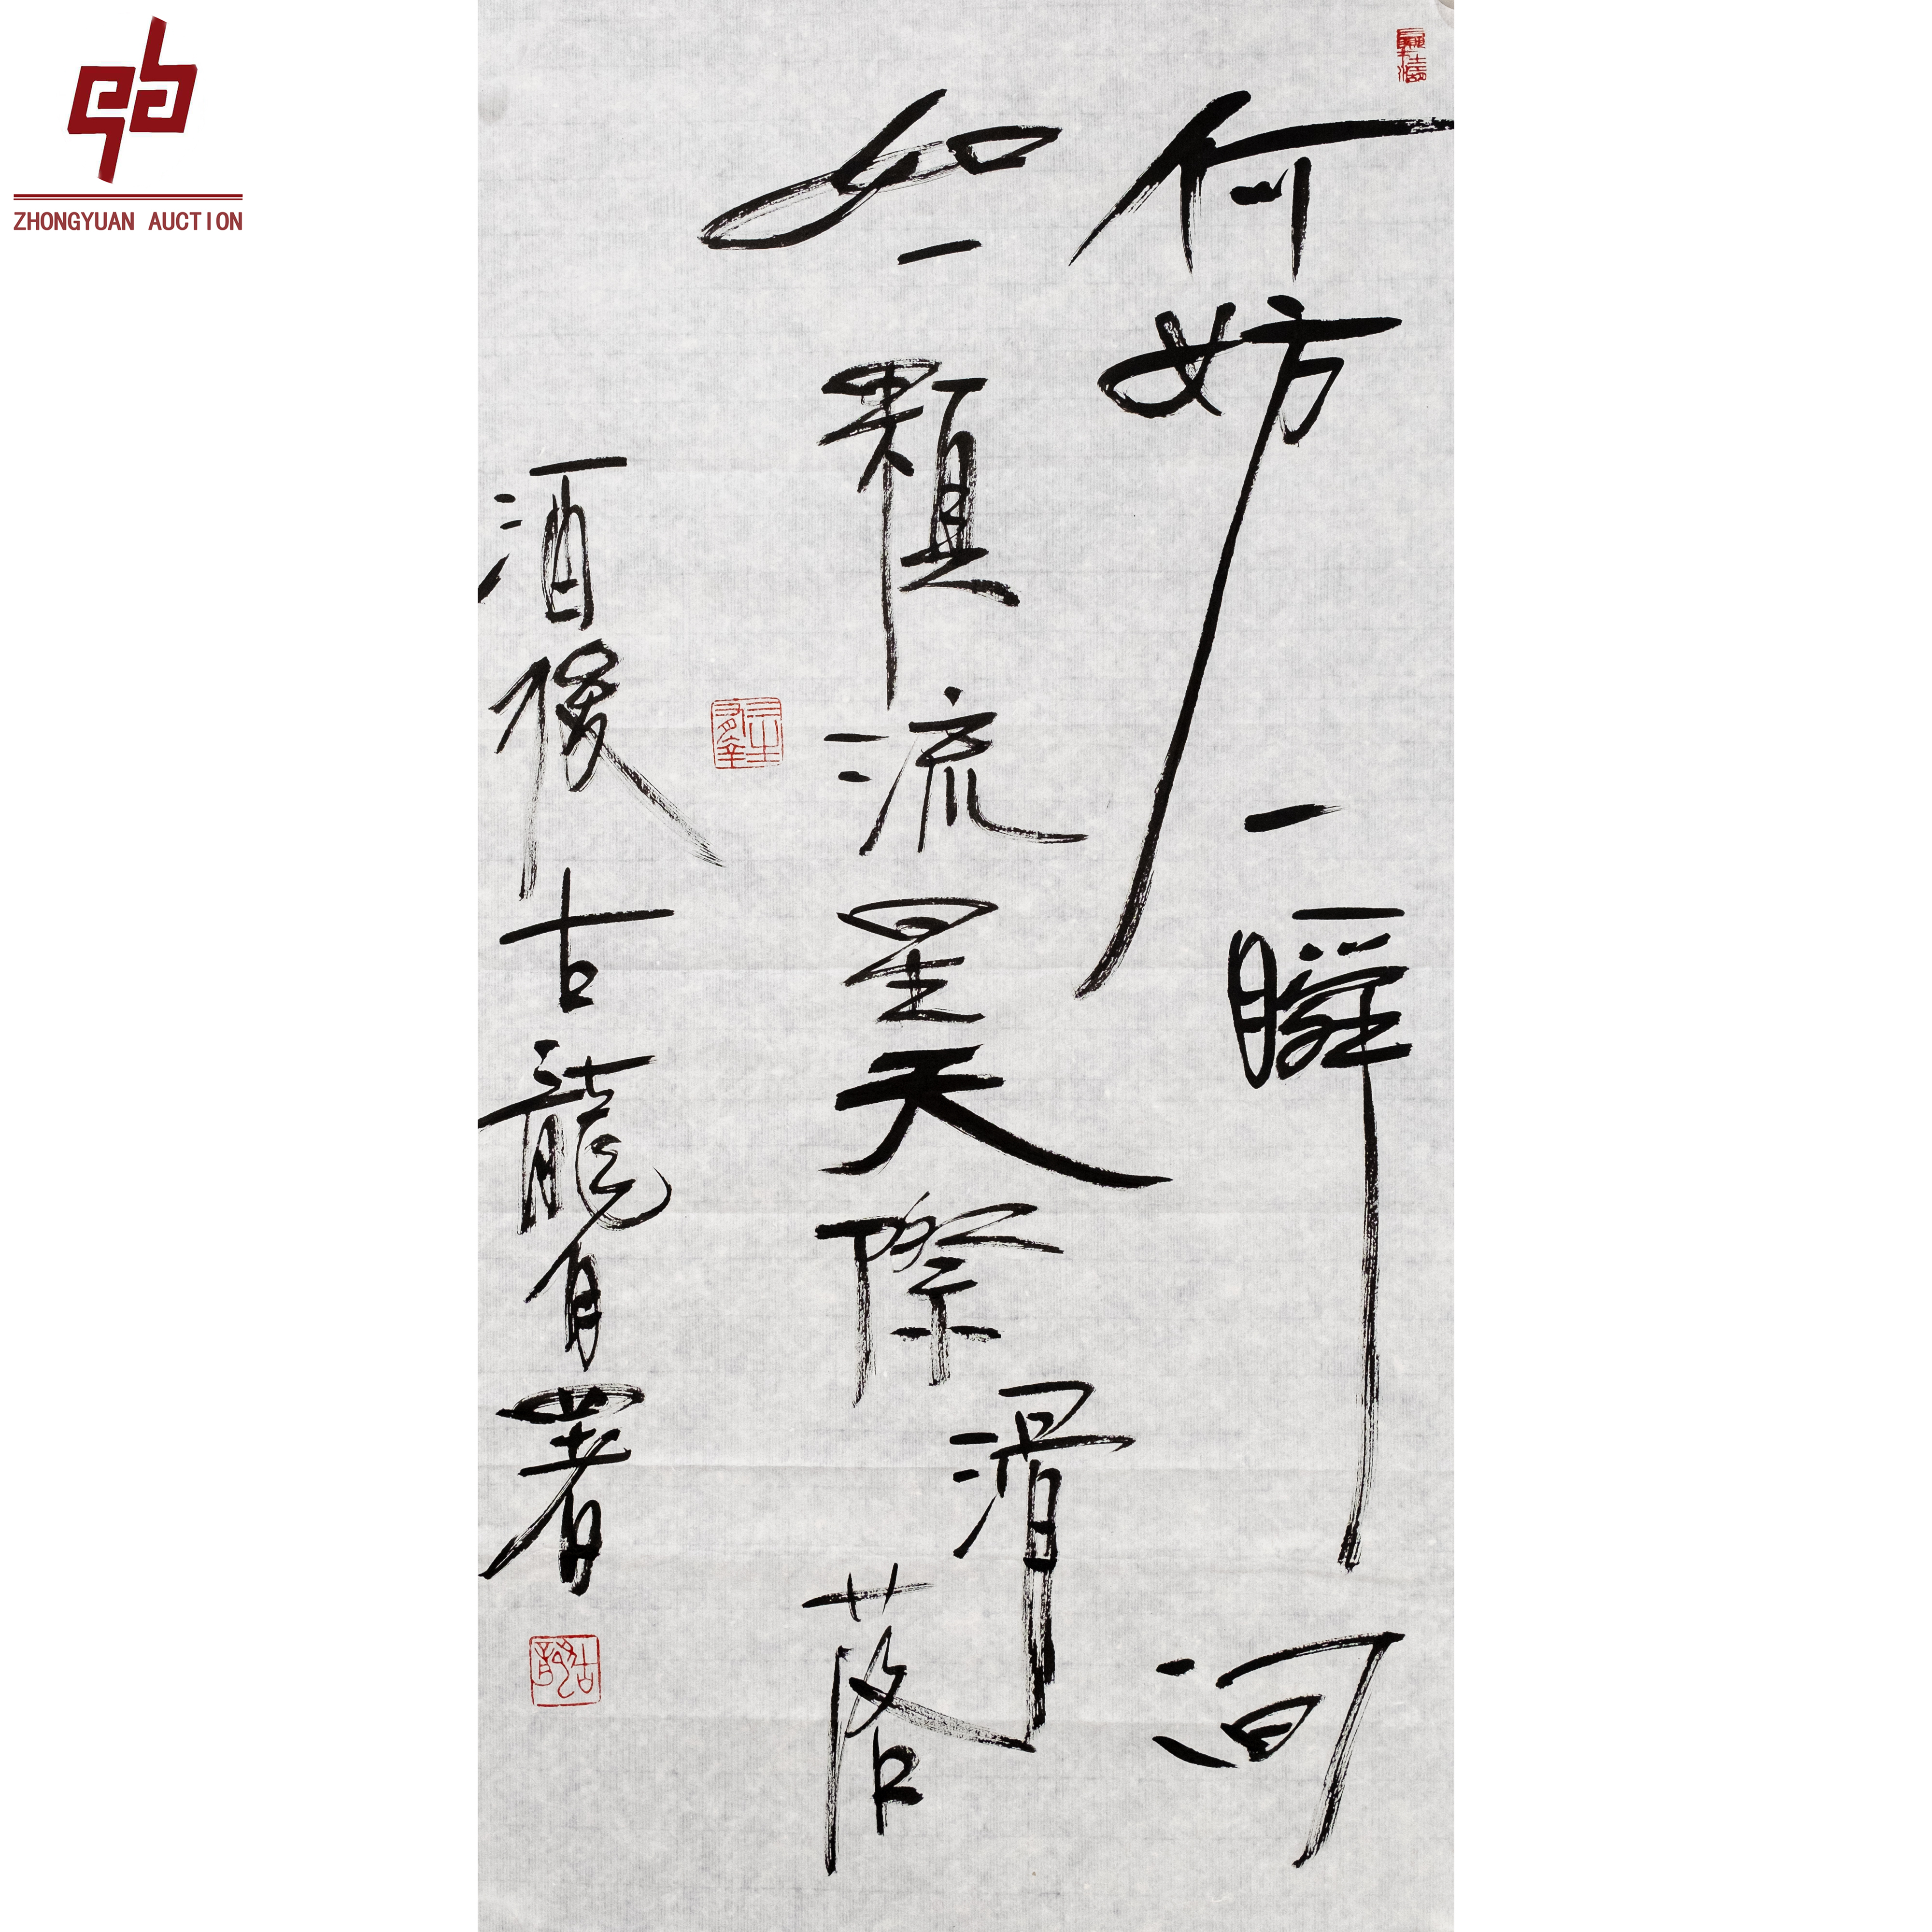 ZHONGYUAN AUCTION
何妨一瞬间
如一顆流星天際滑落
酒後古龍自署
古龍